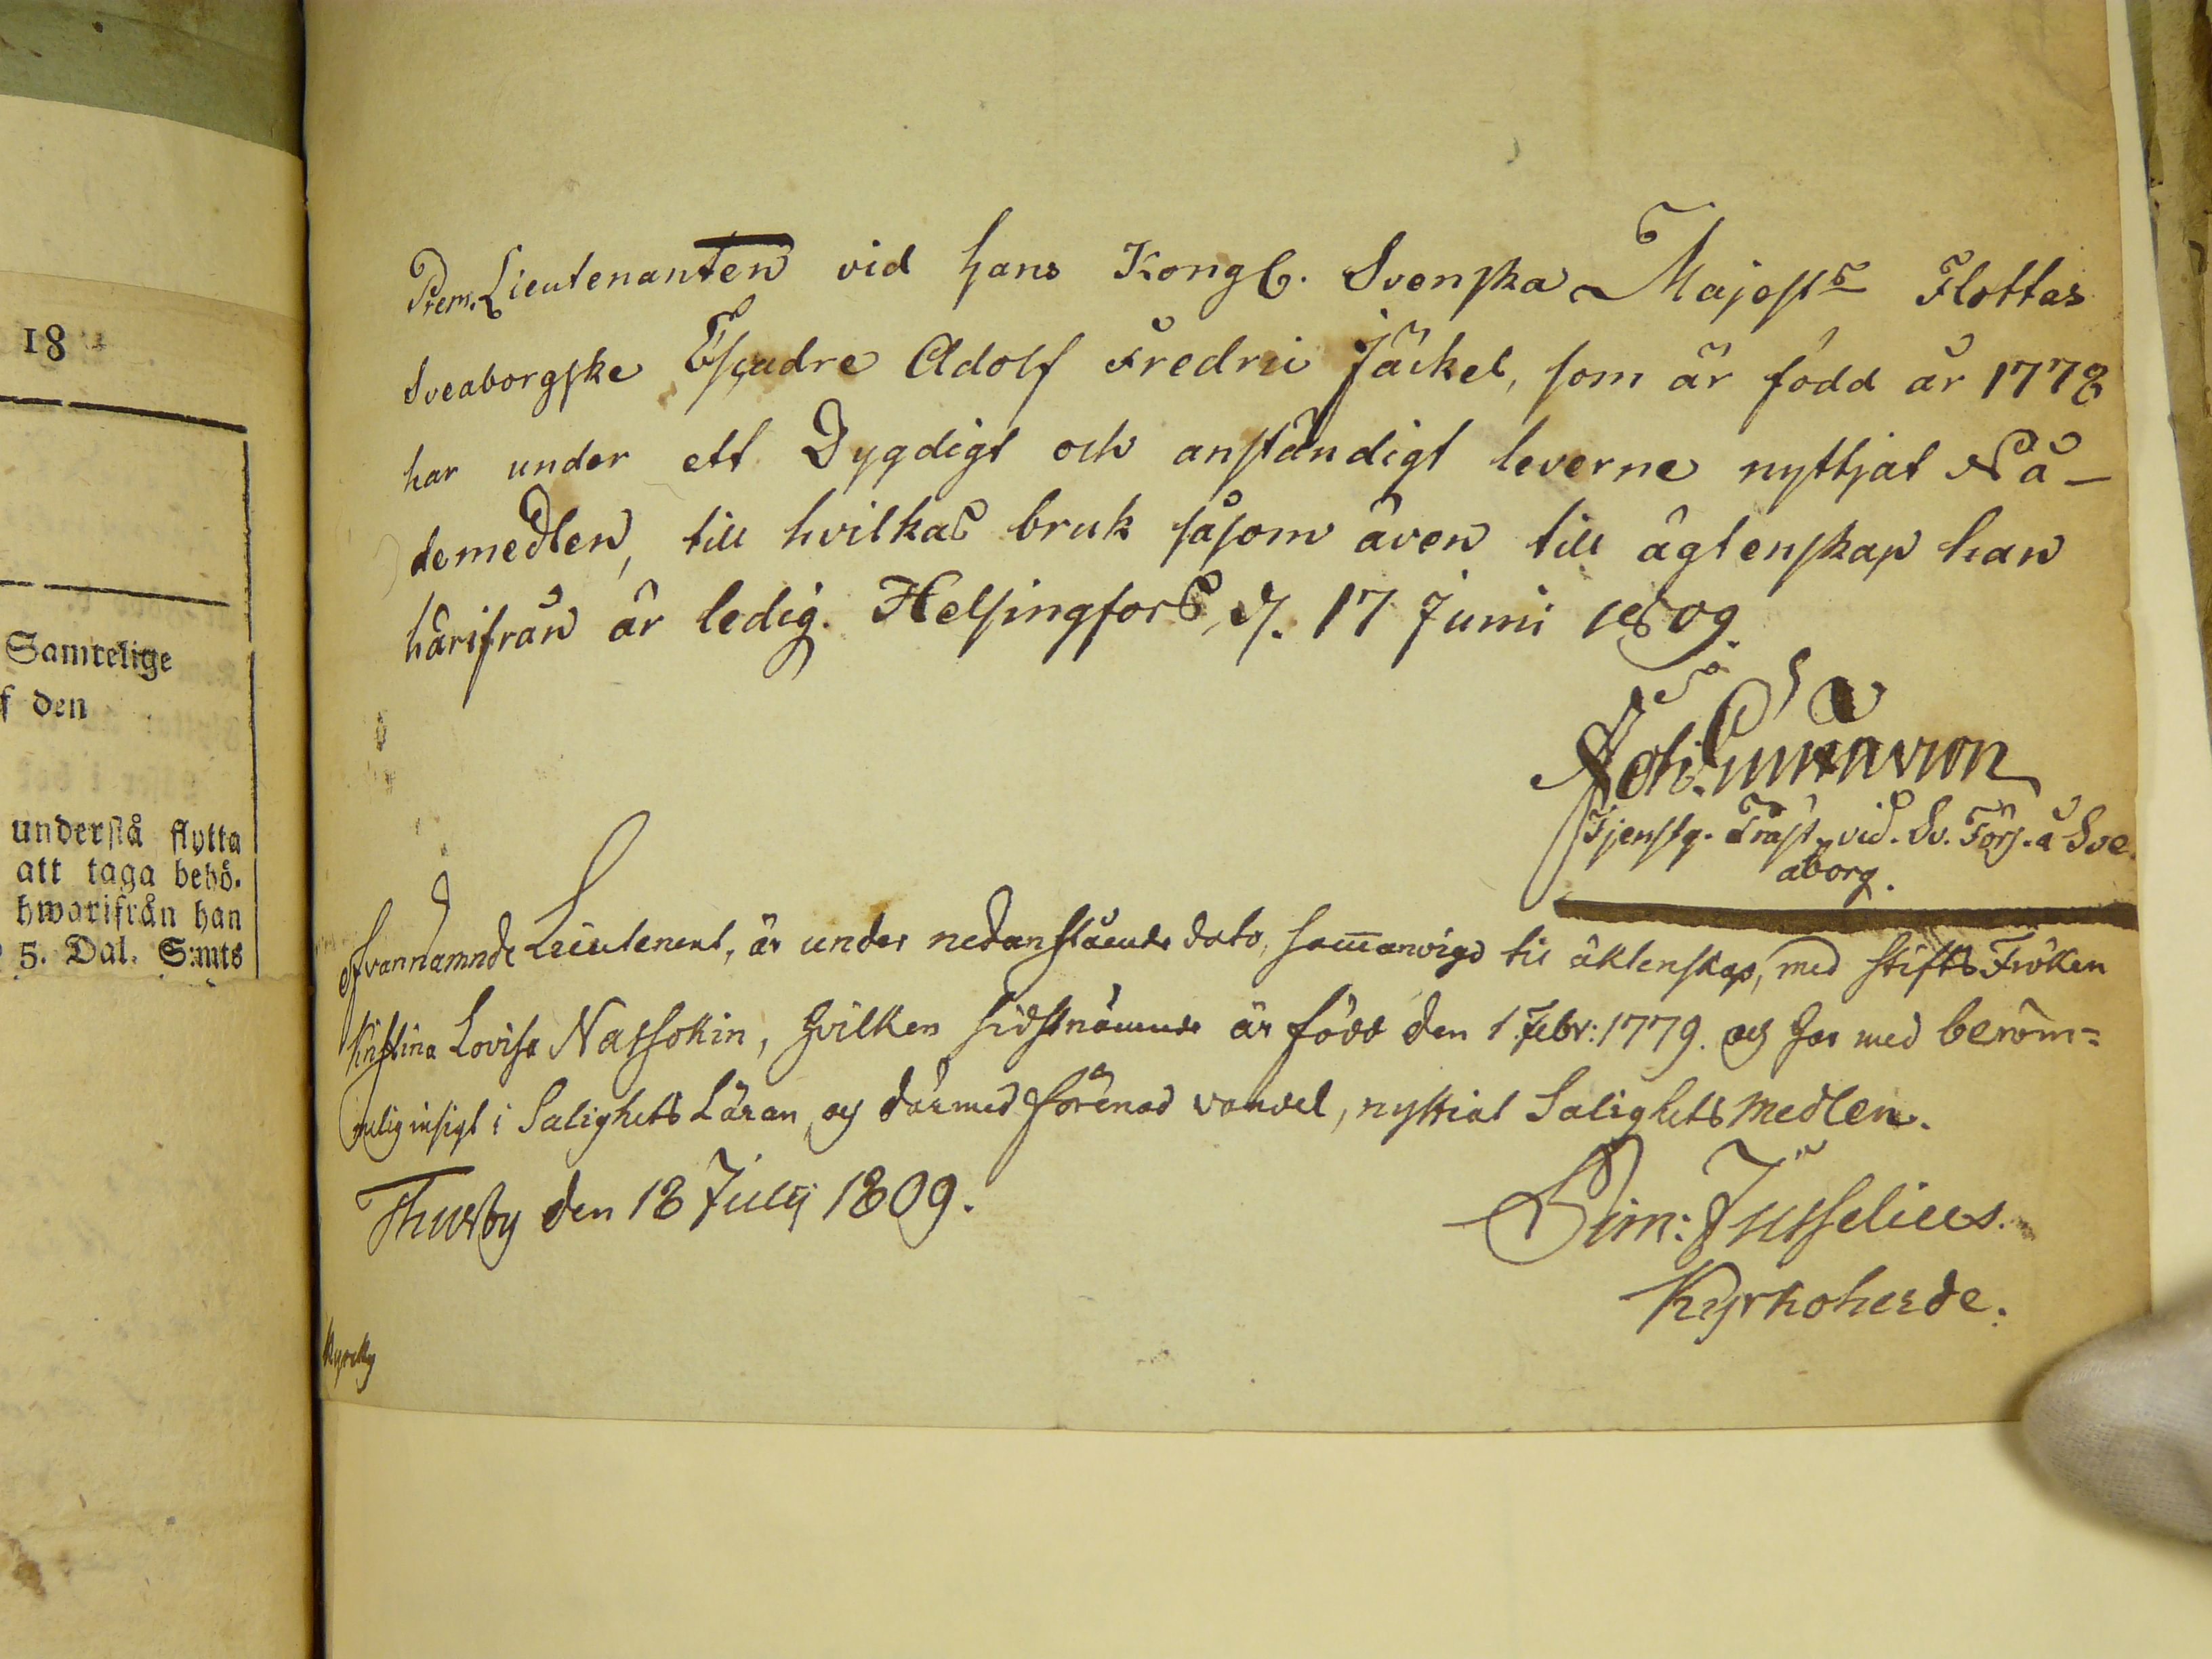 18
Samtelige
f den
understå flytta
att taga behö-
hwarifrån han
5. Dal. S:mts
Prem. Lieutenanten vid hans Kongl. Svenska Majests Flottas
Sveaborgske Escadre Adolf Fredric Jäckel, som är född år 1778
har under ett Dygdigt och anständigt leverne nyttjat Nå-
demedlen, till hvilkas bruk såsom även till ägtenskap han
härifrån är ledig. Helsingfors, d. 17 Junii 1809.
Joh.
Tjenstg. Präst vid Sv. Förs. å Svea
borg.
Ofvannamnde Lieutenent, är under nedanstående dato, sammanvigd til äktenskap, med Stifts Fröken
Kristina Lovisa Nassokin, hvilken sidstnämnde är född den 1 Febr: 1779. og har med beröm=
melig insigt i Salighets Läran, og därmed förenad vandel, nyttiat Salighets medlen.
Thusby den 18 Julij 1809.
Sim: Jusselius.
Kyrkoherde.